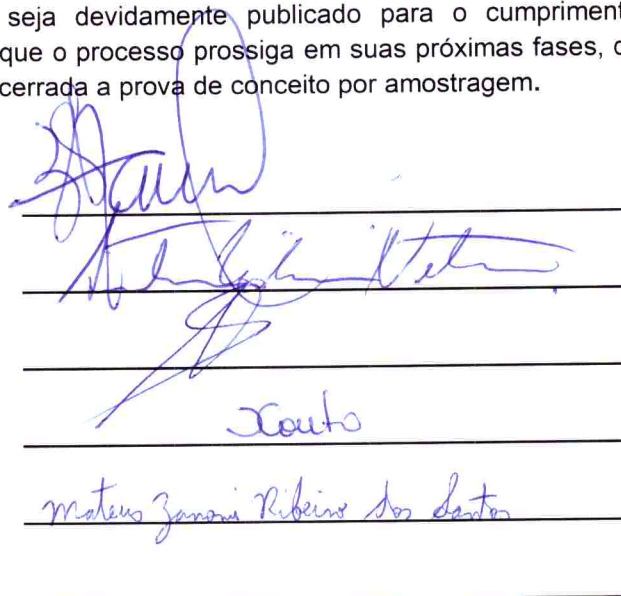 seja devidamente publicado para o cumpriment
que o processo prossiga em suas próximas fases, c
cerrada a prova de conceito por amostragem.
Couto
Mateus Zanoni Ribeiro dos Santos